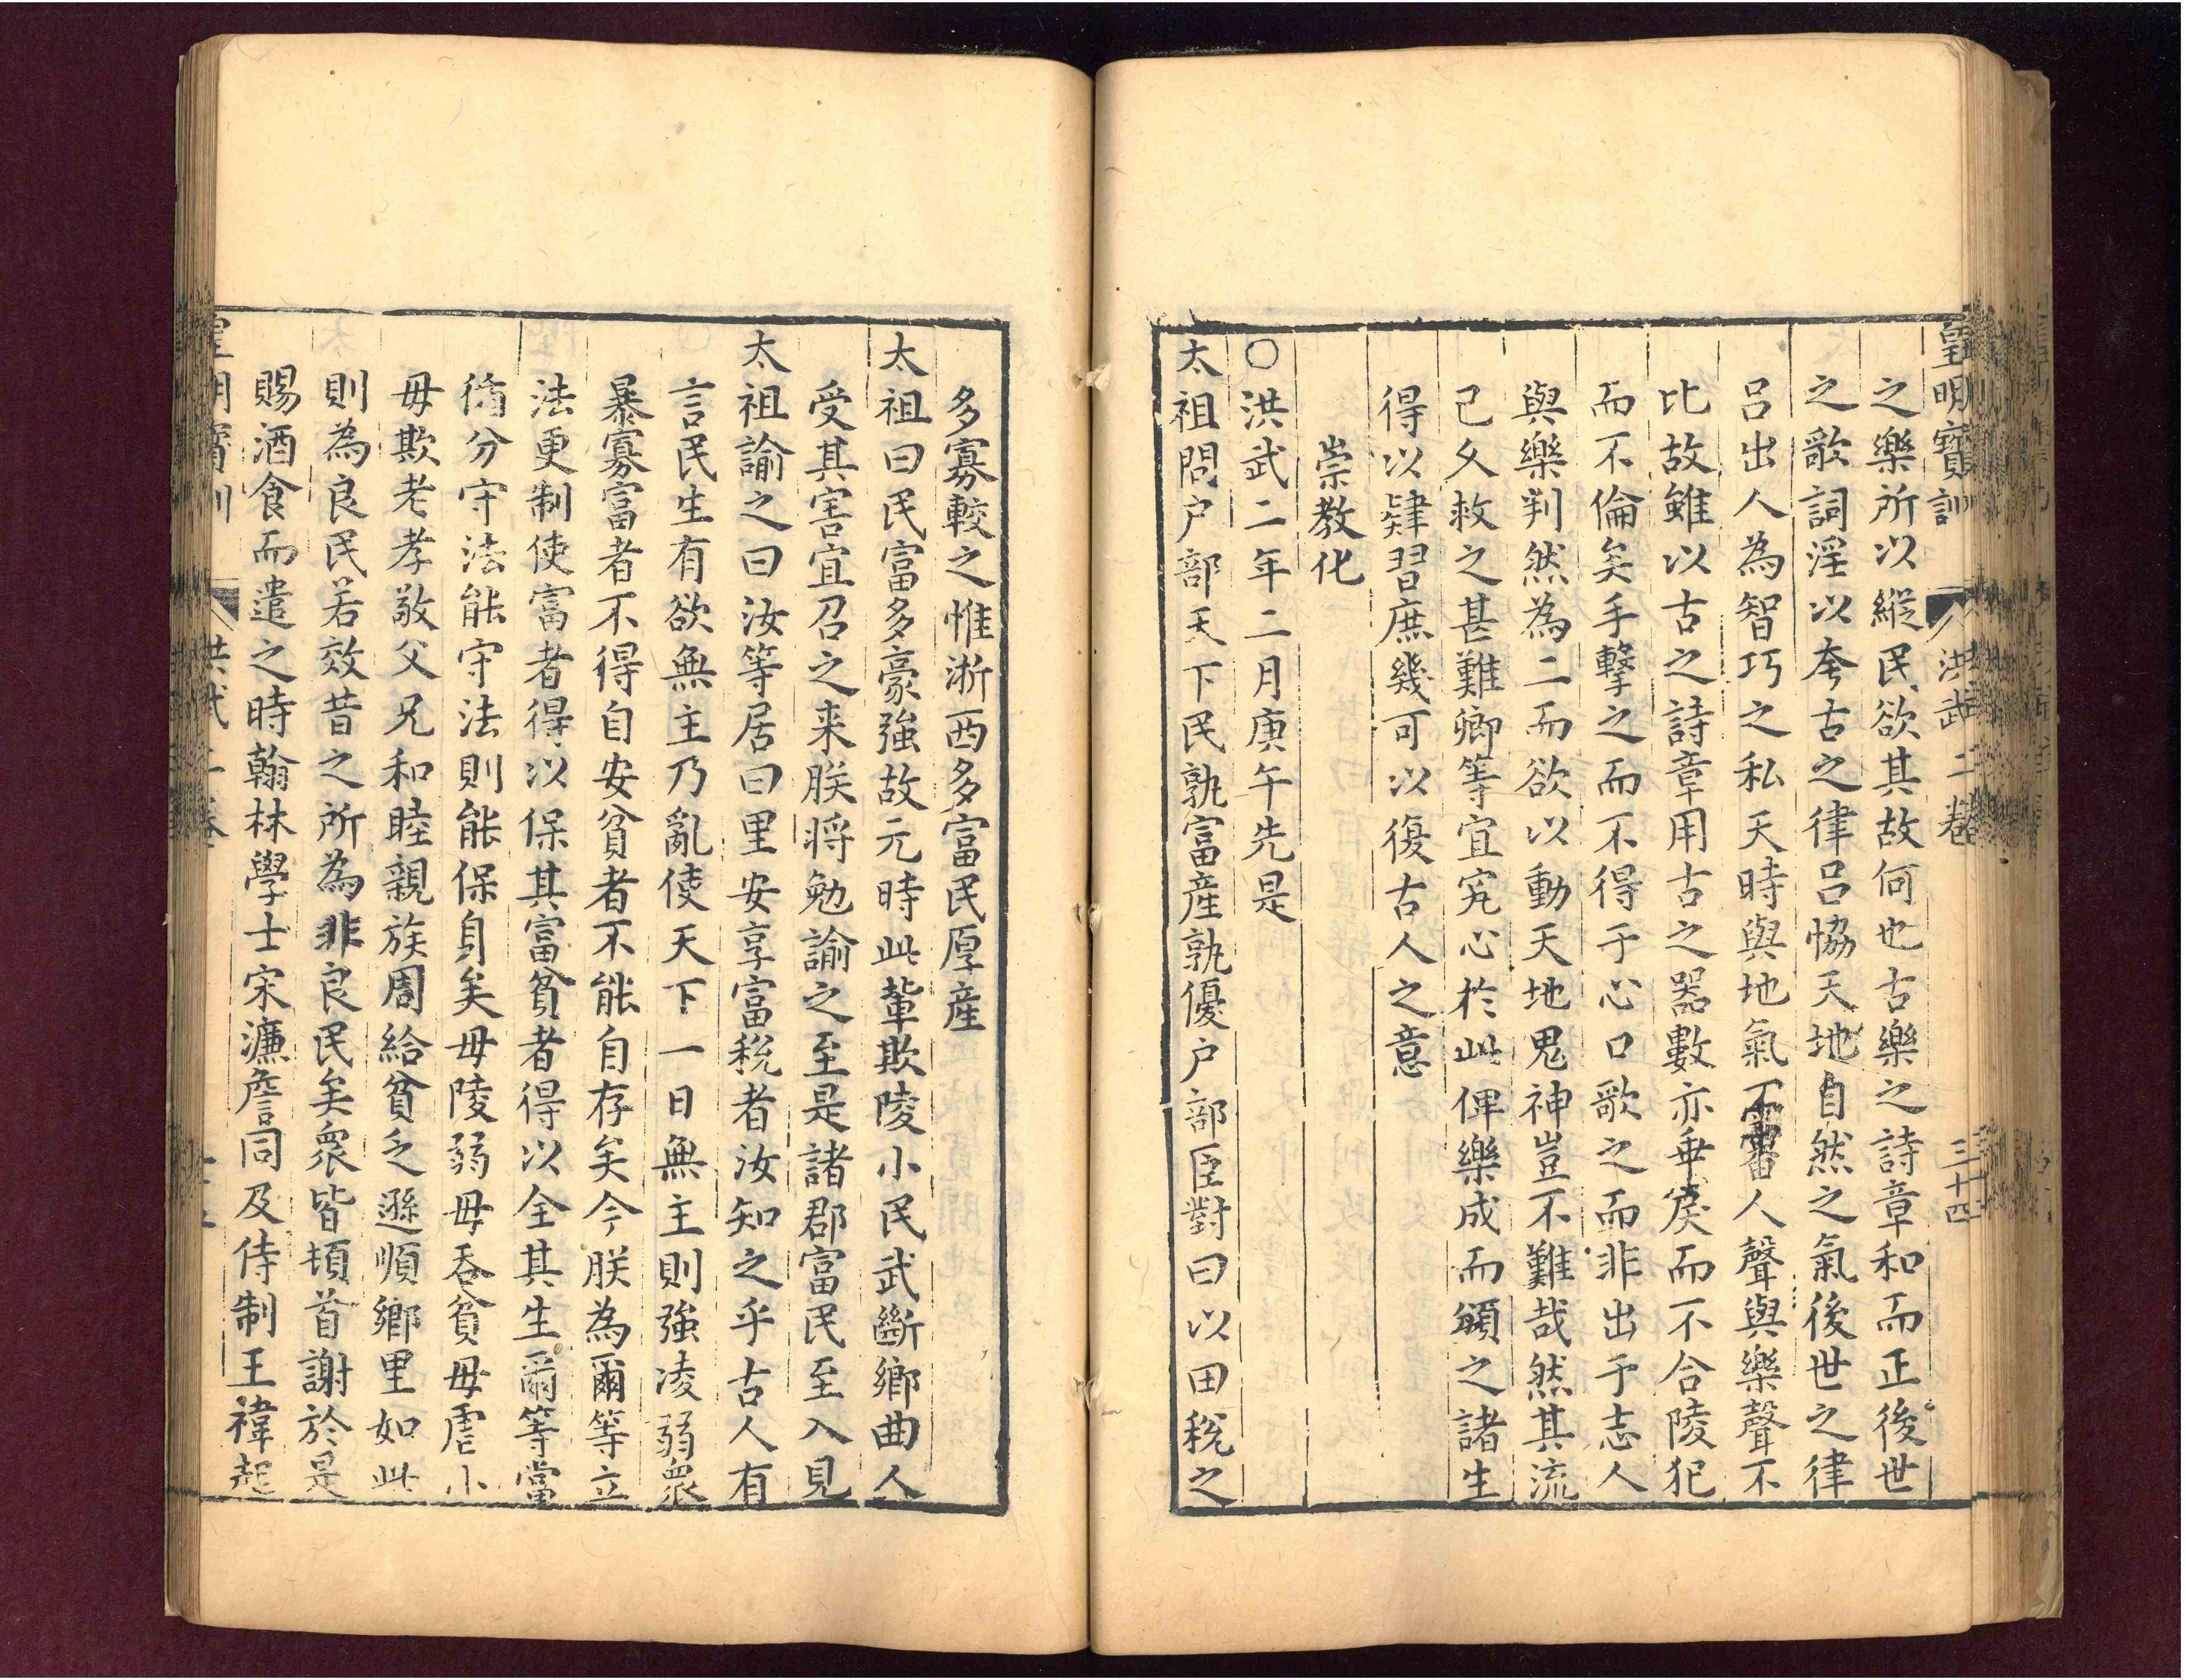 皇明寶訓 洪武二卷 三十四
之樂所以縱民欲其故何也古樂之詩章和而正後世
之歌詞淫以夸古之律呂恊天地自然之氣後世之律
呂出人為智巧之私天時與地氣不審人聲與樂聲不
比故雖以古之詩章用古之器數亦乖戾而不合陵犯
而不倫矣手擊之而不得于心口歌之而非出于志人
與樂判然為二而欲以動天地鬼神豈不難哉然其流
已久救之甚難卿等宜究心於此俾樂成而頒之諸生
得以肄習庶幾可以復古人之意
崇教化
○洪武二年二月庚午先是
太祖問户部天下民孰富産孰優户部臣對曰以田稅之
多寡較之惟浙西多富民厚産
太祖曰民富多豪強故元時此軰欺陵小民武斷鄉曲人
受其害宜召之来朕將勉諭之至是諸郡富民至入見
太祖諭之曰汝等居田里安享富稅者汝知之乎古人有
言民生有欲無主乃亂使天下一日無主則強凌弱衆
暴寡富者不得自安貧者不能自存矣今朕為爾等立
法更制使富者得以保其富貧者得以全其生爾等當
循分守法能守法則能保身矣毋陵弱毋吞貧毋虐小
毋欺老孝敬父兄和睦親族周給貧乏遜順鄉里如此
則為良民若效昔之所為非良民矣衆皆頓首謝於是
賜酒食而遣之時翰林學士宋濂詹同及侍制王禕起
皇明寶訓 洪武二卷